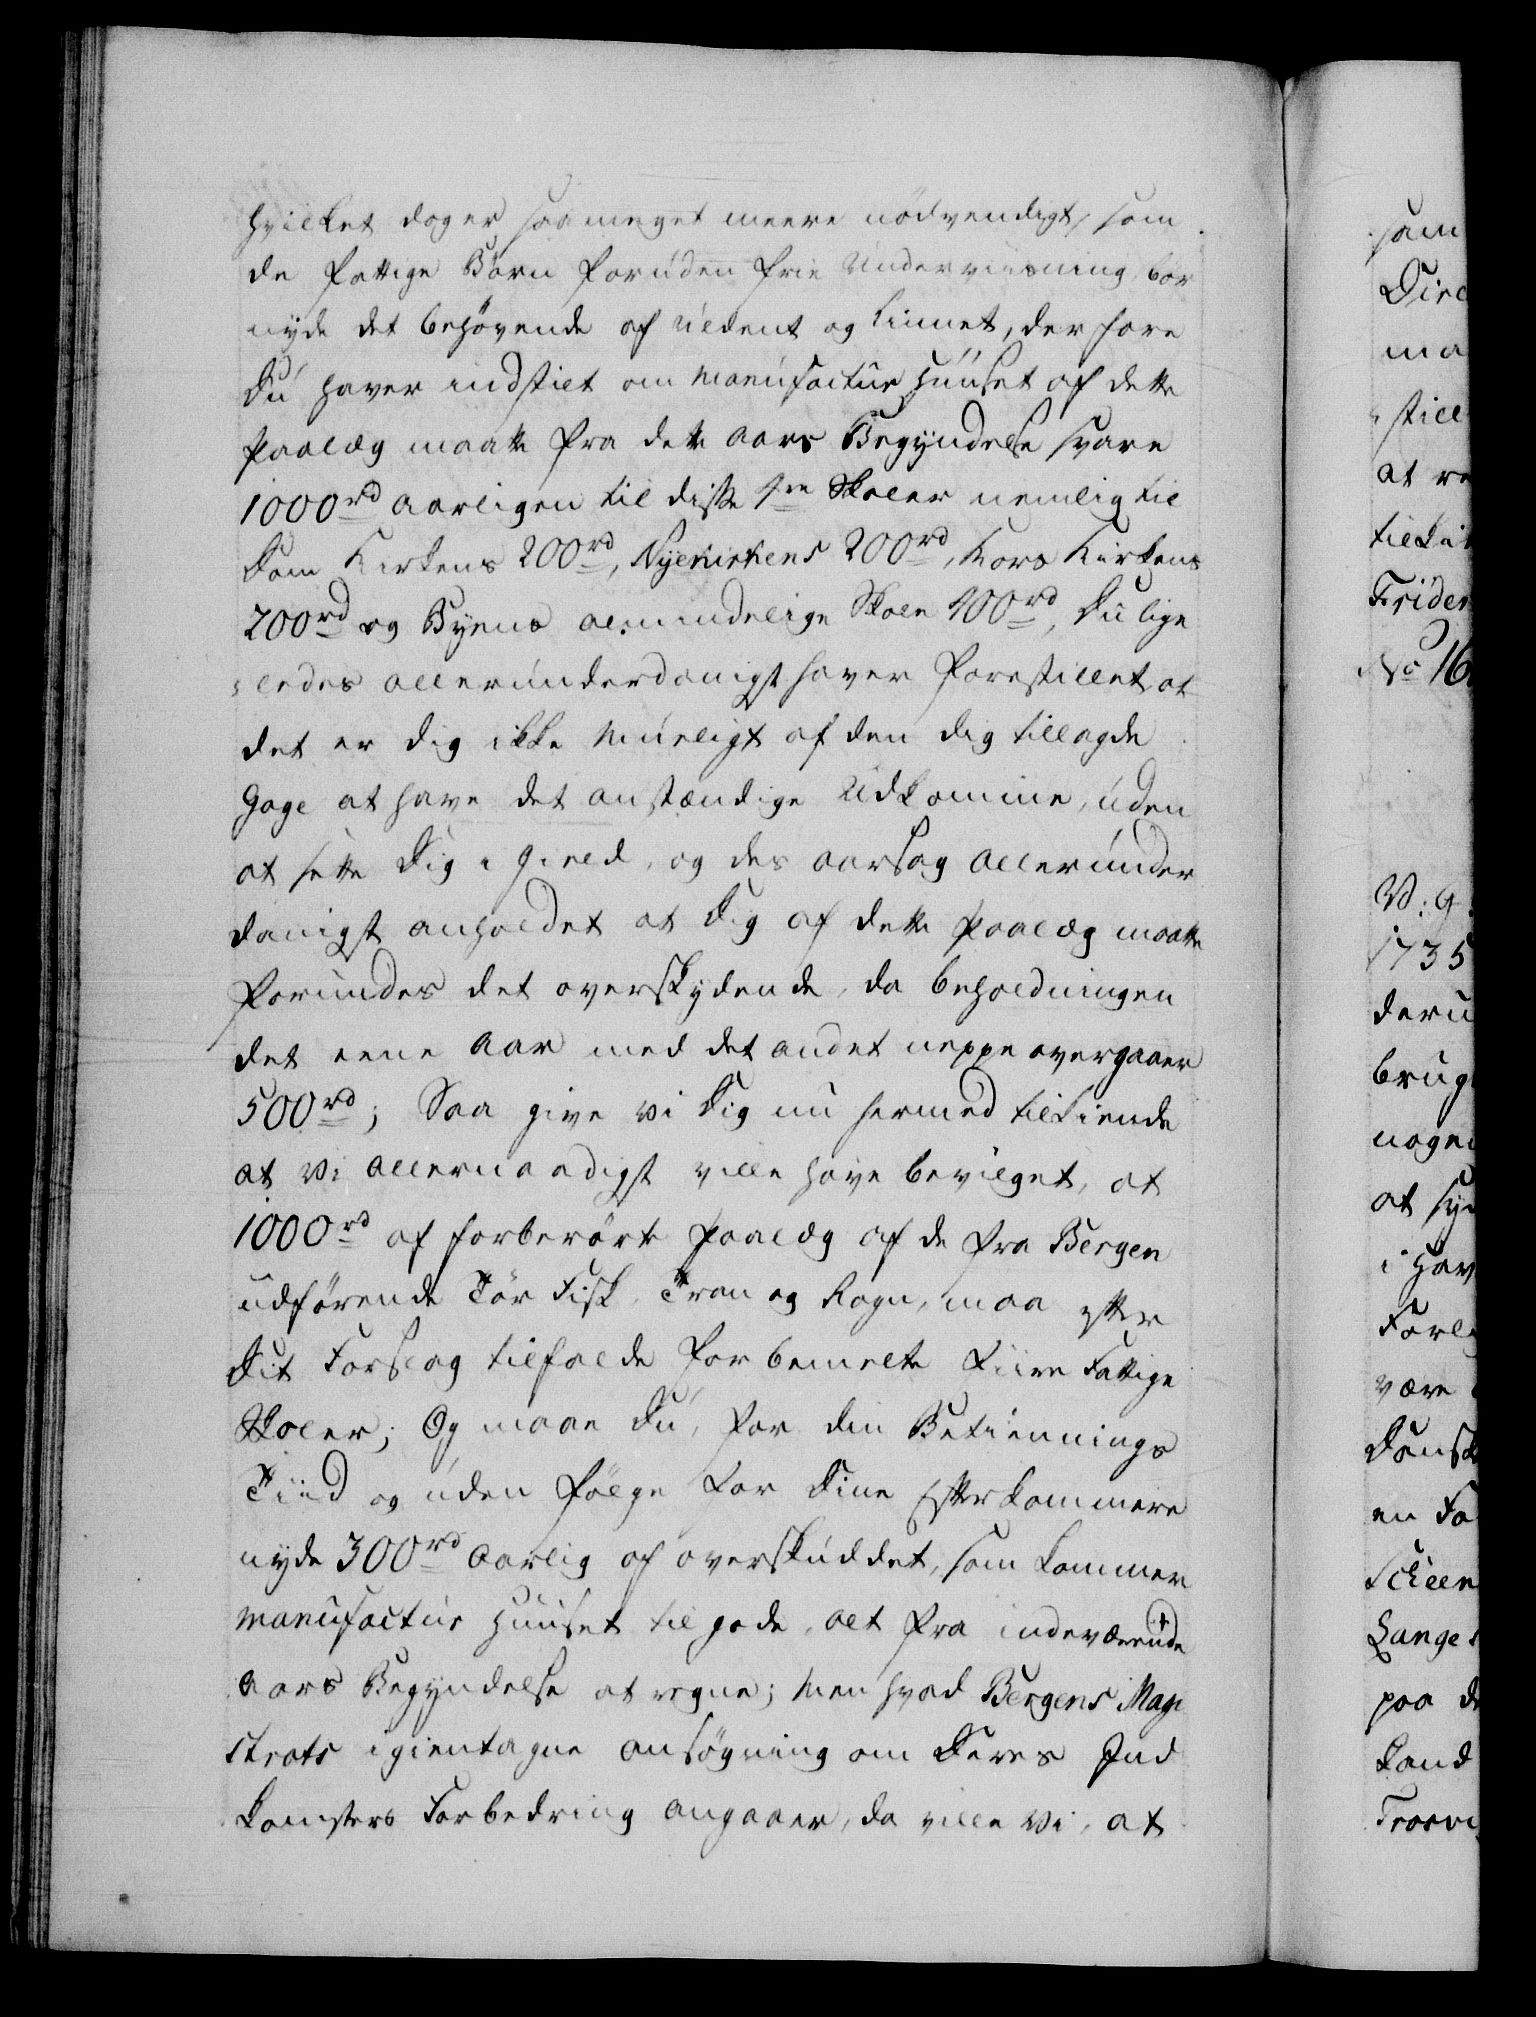 hvilket dog er saa meget meere nödvendigt, som
de fattige Börn foruden frie Underviisning bör
nyde det behövende af uldent og Linnet, derfore
Du haver indstilt om Manufactur Huuset af dette
paalæg maatte fra dette Aars Begyndelse svare
1000rd aarligen til disse 4re Skoler nemlig til
Dom Kirkens 200rd, Nyekirkens 200rd, Kors Kirkens
200rd og Byens almindelige Skole 400rd, Du lige
ledes allerunderdanigst haver forestillet at
det er dig ikke mueligt af den dig tillagde
Gage at have det anstændige Udkomme, uden
at sette Dig i Gield, og des aarsag allerunder
danigst anholdet at Dig af dette paalæg maatte
forundes det overskydende, da beholdningen
det eene Aar med det andet neppe overgaaer
500rd; Saa give vi Dig nu hermed tilkiende
at Vi allernaadigst ville have bevilget, at
1000rd af forberørte paalæg af de fra Bergen
udførende Tør Fisk, Tran og Rogn, maa efter
Dit Forslag tilfalde forbemelte Fiire Fattige
Skoler; Og maae Du, for din Betiennings
Tiid og uden følge for Dine Efterkommere
nyde 300rd aarlig af overskuddet, som kommer
Manufactur Huuset til gode, alt fra indeværende
Aars Begyndelse at regne; Men hvad Bergens Magi
strats igientagne ansøgning om Deres Ind
komsters Forbedring angaaer, da ville Vi, at

som
Dire
ma
still
at re
tilki
Frider
No 16
V: G.
1735
deru
brug
noge
at sy
i Hav
Forl
være
Dansk
en Fo
Scheen
Lange
paa d
Land
Trosvi